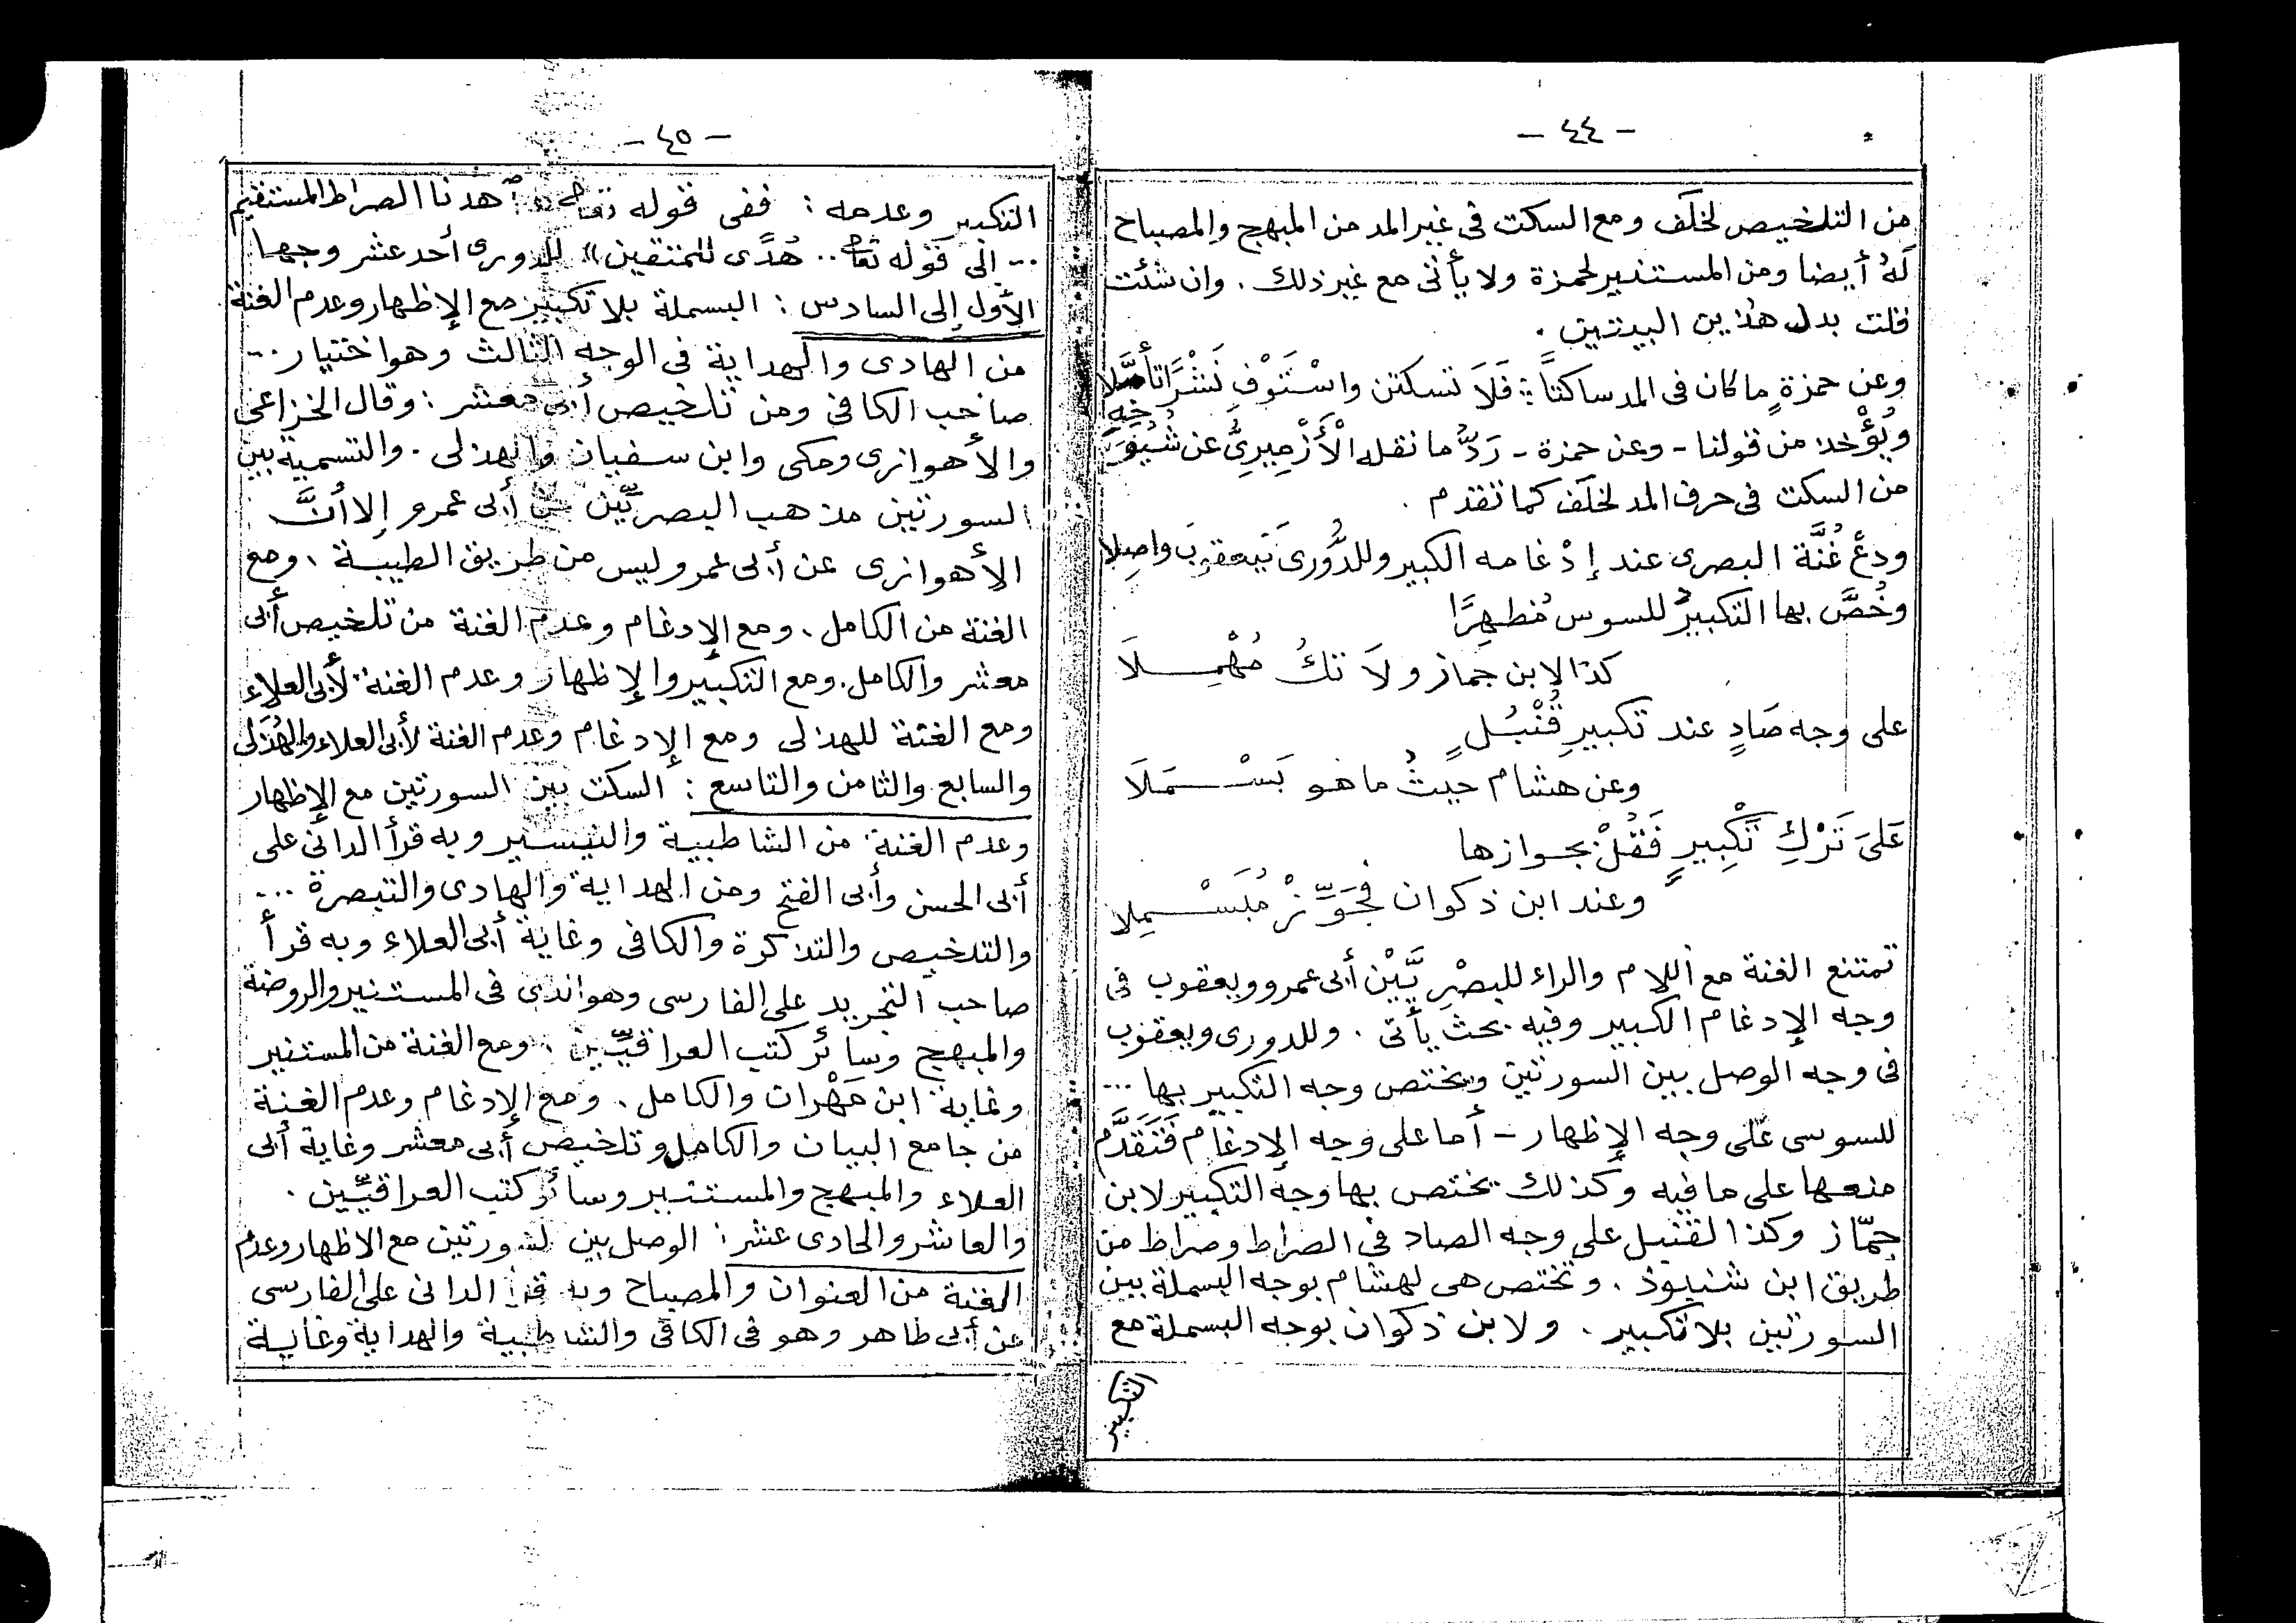 - ٤٤ -
من التلخيص لخلَف ومع السكت فى غير المد من المبهج والمصباح
لَهُ أيضا ومن المستنير لحمزة ولا يأتى مع غير ذلك . وان شئت
قلت بدل هذين البيتين .
وعن حمزةٍ ما كان فى المد ساكناً : فَلاَ تسكتن واسْتَوْفِ نَشْرًا تأصَّلا
ويُؤْخذ من قولنا - وعن حمزة - رَدُّ ما نقله الْأَزْمِيرِىُّ عن شُيُوخِهِ
من السكت فى حرف المد لخلَف كما تقدم .
ودعْ غُنَّة البصرى عند إدْغامه الكبير وللدُّورى يَعقوبَ واصِلا
وخُصَّ بها التكبيرُ للسوس مُظهِرًا
كذا لابن جماز ولَا تكُ مُهْمِـلَا
على وجه صَادٍ عند تكبيرِ قُنْبُلٍ
وعن هشام حيثُ ما هو بَسْـمَلَا
عَلىَ تَرْكِ تَكْبِيرٍ فَقُلْ بجوازها
وعند ابن ذكوان فجَوِّزْ مُبَسْـمِلا
تمتنع الغنة مع اللام والراء للبصْرِيَّيْن أبى عمرو ويعقوب فى
وجه الإدغام الكبير وفيه بحث يأتى . وللدورى ويعقوب
فى وجه الوصل بين السورتين ويختص وجه التكبير بها ...
للسوسى على وجه الإظهار - أما على وجه الإدغام فَتَقَدَّم
منعها على ما فيه وكذلك يختص بها وجه التكبير لابن
جمّاز وكذا لقنبل على وجه الصاد فى الصراط وصراط من
طريق ابن شنبوذ . وتختص هى لهشام بوجه البسملة بين
السورتين بلا تكبير . ولابن ذكوان بوجه البسملة مع
التكبير
- ٤٥ -
التكبير وعدمه : ففى قوله تعالى « اهدنا الصراط المستقيم
... إلى قوله تعالى .. هُدًى للمتقين » للدورى أحد عشر وجها
الأول إلى السادس : البسملة بلا تكبير مع الإظهار وعدم الغنة
من الهادى والهداية فى الوجه الثالث وهو اختيار ...
صاحب الكافى ومن تلخيص أبى معشر : وقال الخزاعى
والأهوازى ومكى وابن سفيان والهذلى . والتسمية بين
السورتين مذهب البصريّين عن أبى عمرو إلا أنَّ
الأهوازى عن أبى عمرو ليس من طريق الطيبة ، ومع
الغنة من الكامل . ومع الإدغام وعدم الغنة من تلخيص أبى
معشر والكامل . ومع التكبير والإظهار وعدم الغنة لأبى العلاء
ومع الغنة للهذلى ومع الإدغام وعدم الغنة لأبى العلاء والهُذلى
والسابع والثامن والتاسع : السكت بين السورتين مع الإظهار
وعدم الغنة من الشاطبية والتيسير وبه قرأ الدانى على
أبى الحسن وأبى الفتح ومن الهداية والهادى والتبصرة ...
والتلخيص والتذكرة والكافى وغاية أبى العلاء وبه قرأ
صاحب التجريد على الفارسى وهو الذى فى المستنير والروضة
والمبهج وسائر كتب العراقيّين . ومع الغنة من المستنير
وغاية ابن مَهْران والكامل . ومع الإدغام وعدم الغنة
من جامع البيان والكامل وتلخيص أبى معشر وغاية أبى
العلاء والمبهج والمستنير وسائر كتب العراقيّين .
والعاشر والحادى عشر : الوصل بين السورتين مع الاظهار وعدم
الغنة من العنوان والمصباح وبه قرأ الدانى على الفارسى
عن أبى طاهر وهو فى الكافى والشاطبية والهداية وغاية